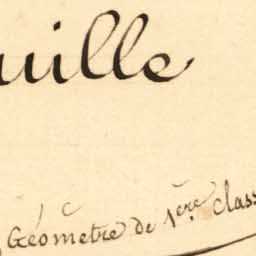 uille
Géomètre de 1ère class